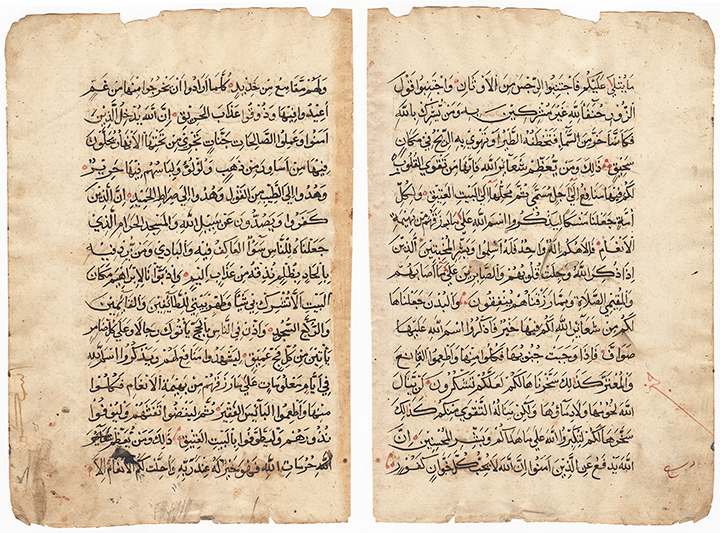 ولهم مقامع من حديد كلما ارادوا ان يخرجوا منها من غم
اعيدوا فيها وذوقوا عذاب الحريق ان الله يدخل الذين
امنوا وعملوا الصالحات جنات تجري من تحتها الانهار يحلون
فيها من اساور من ذهب ولؤلؤ ولباسهم فيها حرير
وهدوا الى الطيب من القول وهدوا الى صراط الحميد ان الذين
كفروا ويصدون عن سبيل الله والمسجد الحرام الذي
جعلناه للناس سواء العاكف فيه والبادي ومن يرد فيه
بالحاد بظلم نذقه من عذاب اليم واذ بوأنا لابراهيم مكان
البيت الا تشرك بي شيئا وطهر بيتي للطائفين والقائمين
والركع السجود واذن في الناس بالحج يأتوك رجالا وعلى كل ضامر
يأتين من كل فج عميق ليشهدوا منافع لهم ويذكروا اسم الله
في ايام معلومات على ما رزقهم من بهيمة الانعام فكلوا
منها واطعموا البائس الفقير ثم ليقضوا تفثهم وليوفوا
نذورهم وليطوفوا بالبيت العتيق ذلك ومن يعظم
حرمات الله فهو خير له عند ربه واحلت لكم الانعام الا
ما يتلى عليكم فاجتنبوا الرجس من الاوثان واجتنبوا قول
الزور حنفاء لله غير مشركين به ومن يشرك بالله
فكأنما خر من السماء فتخطفه الطير او تهوي به الريح في مكان
سحيق ذلك ومن يعظم شعائر الله فانها من تقوى القلوب
لكم فيها منافع الى اجل مسمى ثم محلها الى البيت العتيق ولكل
امة جعلنا منسكا ليذكروا اسم الله على ما رزقهم من بهيمة
الانعام فالهكم اله واحد فله اسلموا وبشر المخبتين الذين
اذا ذكر الله وجلت قلوبهم والصابرين على ما اصابهم
والمقيمي الصلاة ومما رزقناهم ينفقون والبدن جعلناها
لكم من شعائر الله لكم فيها خير فاذكروا اسم الله عليها
صواف فاذا وجبت جنوبها فكلوا منها واطعموا القانع
والمعتر كذلك سخرناها لكم لعلكم تشكرون لن ينال
الله لحومها ولا دماؤها ولكن يناله التقوى منكم كذلك
سخرها لكم لتكبروا الله على ما هداكم وبشر المحسنين ان
الله يدفع عن الذين امنوا ان الله لا يحب كل خوان كفور